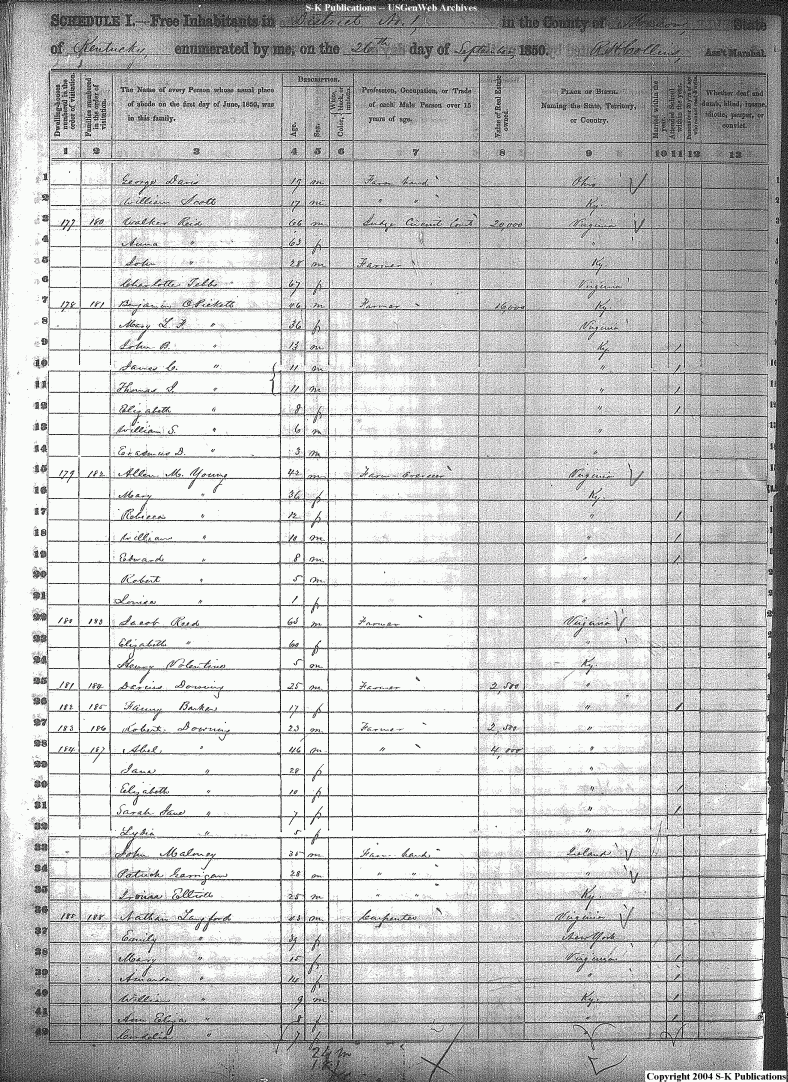 S-K Publications -- USGenWeb Archives
SCHEDULE I.—Free Inhabitants in District No. 1 in the County of Mason State
of Kentucky, enumerated by me, on the 26th day of September, 1850. R H Collins, Ass't Marshal.
Dwelling-houses numbered in the order of visitation.
Families numbered in the order of visitation.
The Name of every Person whose usual place of abode on the first day of June, 1850, was in this family.
DESCRIPTION.
Age.
Sex.
Color, White, black, or mulatto.
Profession, Occupation, or Trade of each Male Person over 15 years of age.
Value of Real Estate owned.
PLACE OF BIRTH. Naming the State, Territory, or Country.
Married within the year.
Whether deaf and dumb, blind, insane, idiotic, pauper, or convict.
1 2 3 4 5 6 7 8 9 10 11 12 13
1 George Davis 19 m Farm hand Ohio
2 William Scott 17 m " " Ky.
3 177 180 Walker Reid 66 m Judge Circuit Court 20,000 Virginia
4 Anna " 63 f "
5 John " 28 m Farmer Ky.
6 Charlotte Tebbs 67 f Virginia
7 178 181 Benjamin O Pickett 46 m Farmer 16,000 Ky.
8 Mary L. F. " 36 f Virginia
9 John B. " 13 m Ky. 1
10 James C. " 11 m " 1
11 Thomas J. " 11 m " 1
12 Elizabeth " 8 f " 1
13 William S. " 6 m "
14 Erasmus D. " 3 m "
15 179 182 Allen M. Young 42 m Farm Overseer Virginia
16 Mary " 36 f Ky.
17 Rebecca " 12 f " 1
18 William " 10 m " 1
19 Edward " 8 m " 1
20 Robert " 5 m "
21 Louisa " 1 f "
22 180 183 Jacob Reed 63 m Farmer Virginia
23 Elizabeth " 60 f "
24 Henry Valentine 5 m Ky.
25 181 184 Darius Downing 25 m Farmer 2,500 "
26 182 185 Fanny Barker 17 f " 1
27 183 186 Robert Downing 23 m Farmer 2,500 "
28 184 187 Abel " 46 m " 4,000 "
29 Jane " 28 f "
30 Elizabeth " 10 f " 1
31 Sarah Jane " 7 f " 1
32 Lydia " 5 f "
33 " John Maloney 35 m Farm hand Ireland
34 Patrick Garrigan 28 m " " "
35 Elliott 25 m " " Ky.
36 185 188 Nathan Langford 43 m Carpenter Virginia
37 Emily " 39 f New York
38 Mary " 15 f Virginia 1
39 Amanda " 14 f " 1
40 William " 9 m Ky. 1
41 Ann Eliza " 8 f " 1
42 Cordelia " 7 f " 1
24 m
Copyright 2004 S-K Publications